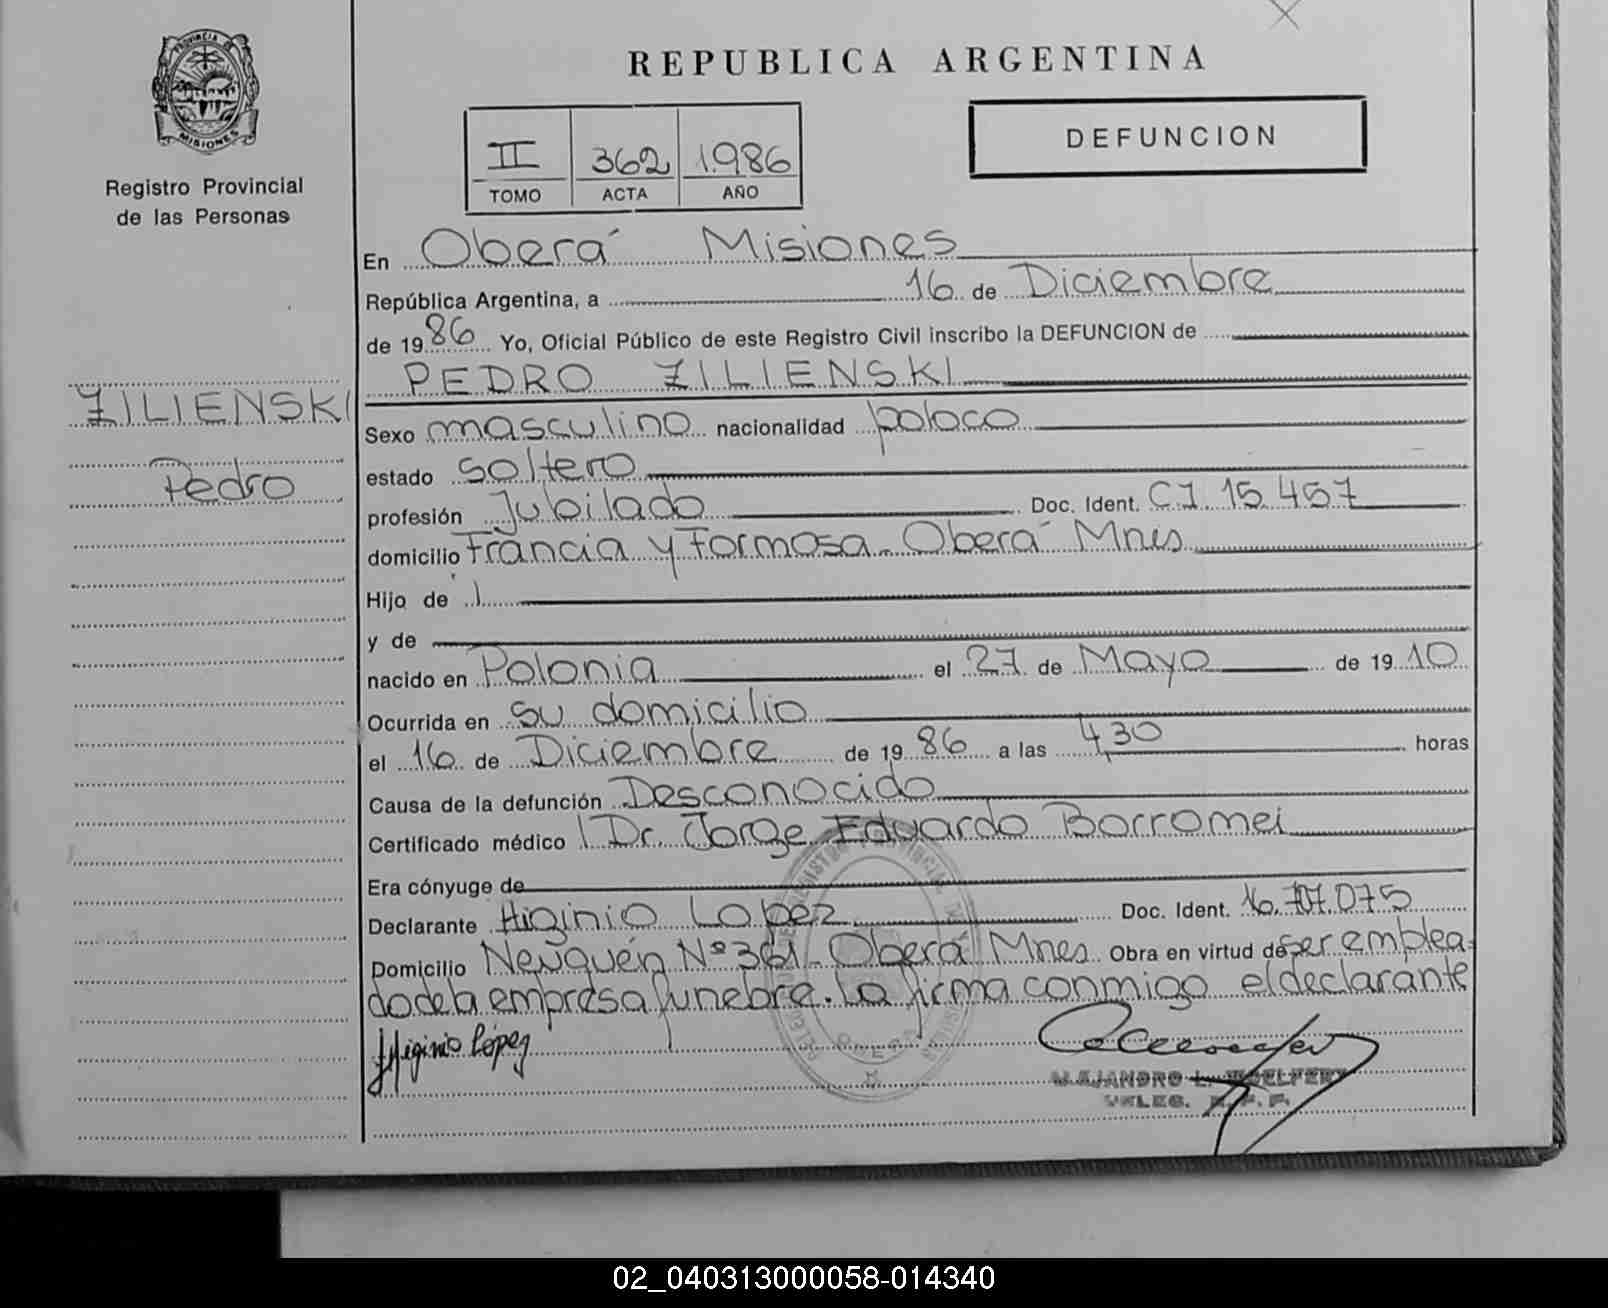 PROVINCIA DE
MISIONES
Registro Provincial
de las Personas
ZILIENSKI
Pedro
REPUBLICA ARGENTINA
II 362 1.986
TOMO ACTA AÑO
DEFUNCION
En Oberá Misiones
República Argentina, a 16 de Diciembre
de 1986 Yo, Oficial Público de este Registro Civil inscribo la DEFUNCION de
PEDRO ZILIENSKI
Sexo masculino nacionalidad polaco
estado soltero
profesión Jubilado Doc. Ident. C.I. 15.457
domicilio Francia y Formosa - Oberá Mnes
Hijo de
y de
nacido en Polonia el 27 de Mayo de 1910
Ocurrida en su domicilio
el 16 de Diciembre de 1986 a las 4,30 horas
Causa de la defunción Desconocido
Certificado médico Dr. Jorge Eduardo Borromei
Era cónyuge de
Declarante Higinio Lopez Doc. Ident. 16.707.075
Domicilio Neuquén Nº 361 - Oberá Mnes. Obra en virtud de ser emplea-
do de la empresa funebre. La firma conmigo el declarante
Higinio López
02_040313000058-014340